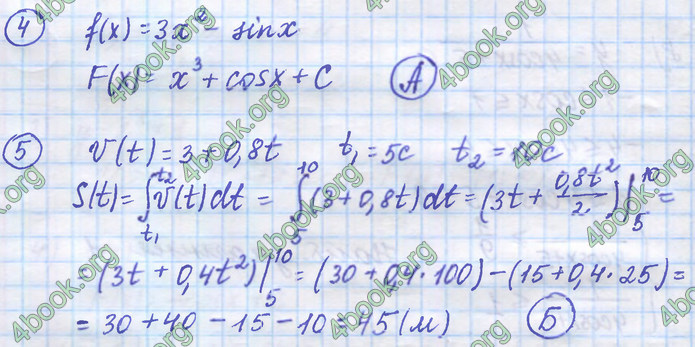 ④ f(x) = 3x² - sinx
F(x) = x³ + cosx + C (А)
⑤ V(t) = 3 + 0,8t t₁ = 5с t₂ = 10с
S(t) = ∫_{t₁}^{t₂} v(t)dt = ∫_{5}^{10} (3 + 0,8t)dt = (3t + 0,8t²/2)|_{5}^{10} =
= (3t + 0,4t²)|_{5}^{10} = (30 + 0,4·100) - (15 + 0,4·25) =
= 30 + 40 - 15 - 10 = 45 (м) (Б)
4book.org